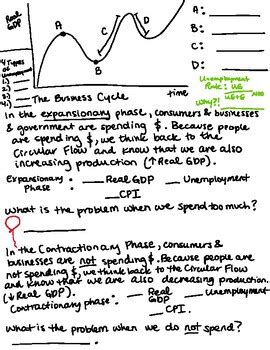 Real
GDP
A
B
C
D
A:
B:
C:
D:
4 Types
of
Unemployment
1
2
3
4
Unemployment
Rate: UE
UE+E x100
Why?!
The Business Cycle
time
In the expansionary phase, consumers & businesses
& government are spending $. Because people
are spending $, we think back to the
Circular Flow and know that we are also
increasing production (↑Real GDP).
Expansionary
Phase : __ Real GDP __ Unemployment
__ CPI
What is the problem when we spend too much?
In the Contractionary Phase, consumers &
businesses are not spending $. Because people are
not spending $, we think back to the Circular Flow
and know that we are also decreasing production.
(↓Real GDP).
Contractionary phase: __ Real GDP __ Unemployment
__ CPI
What is the problem when we do not spend?